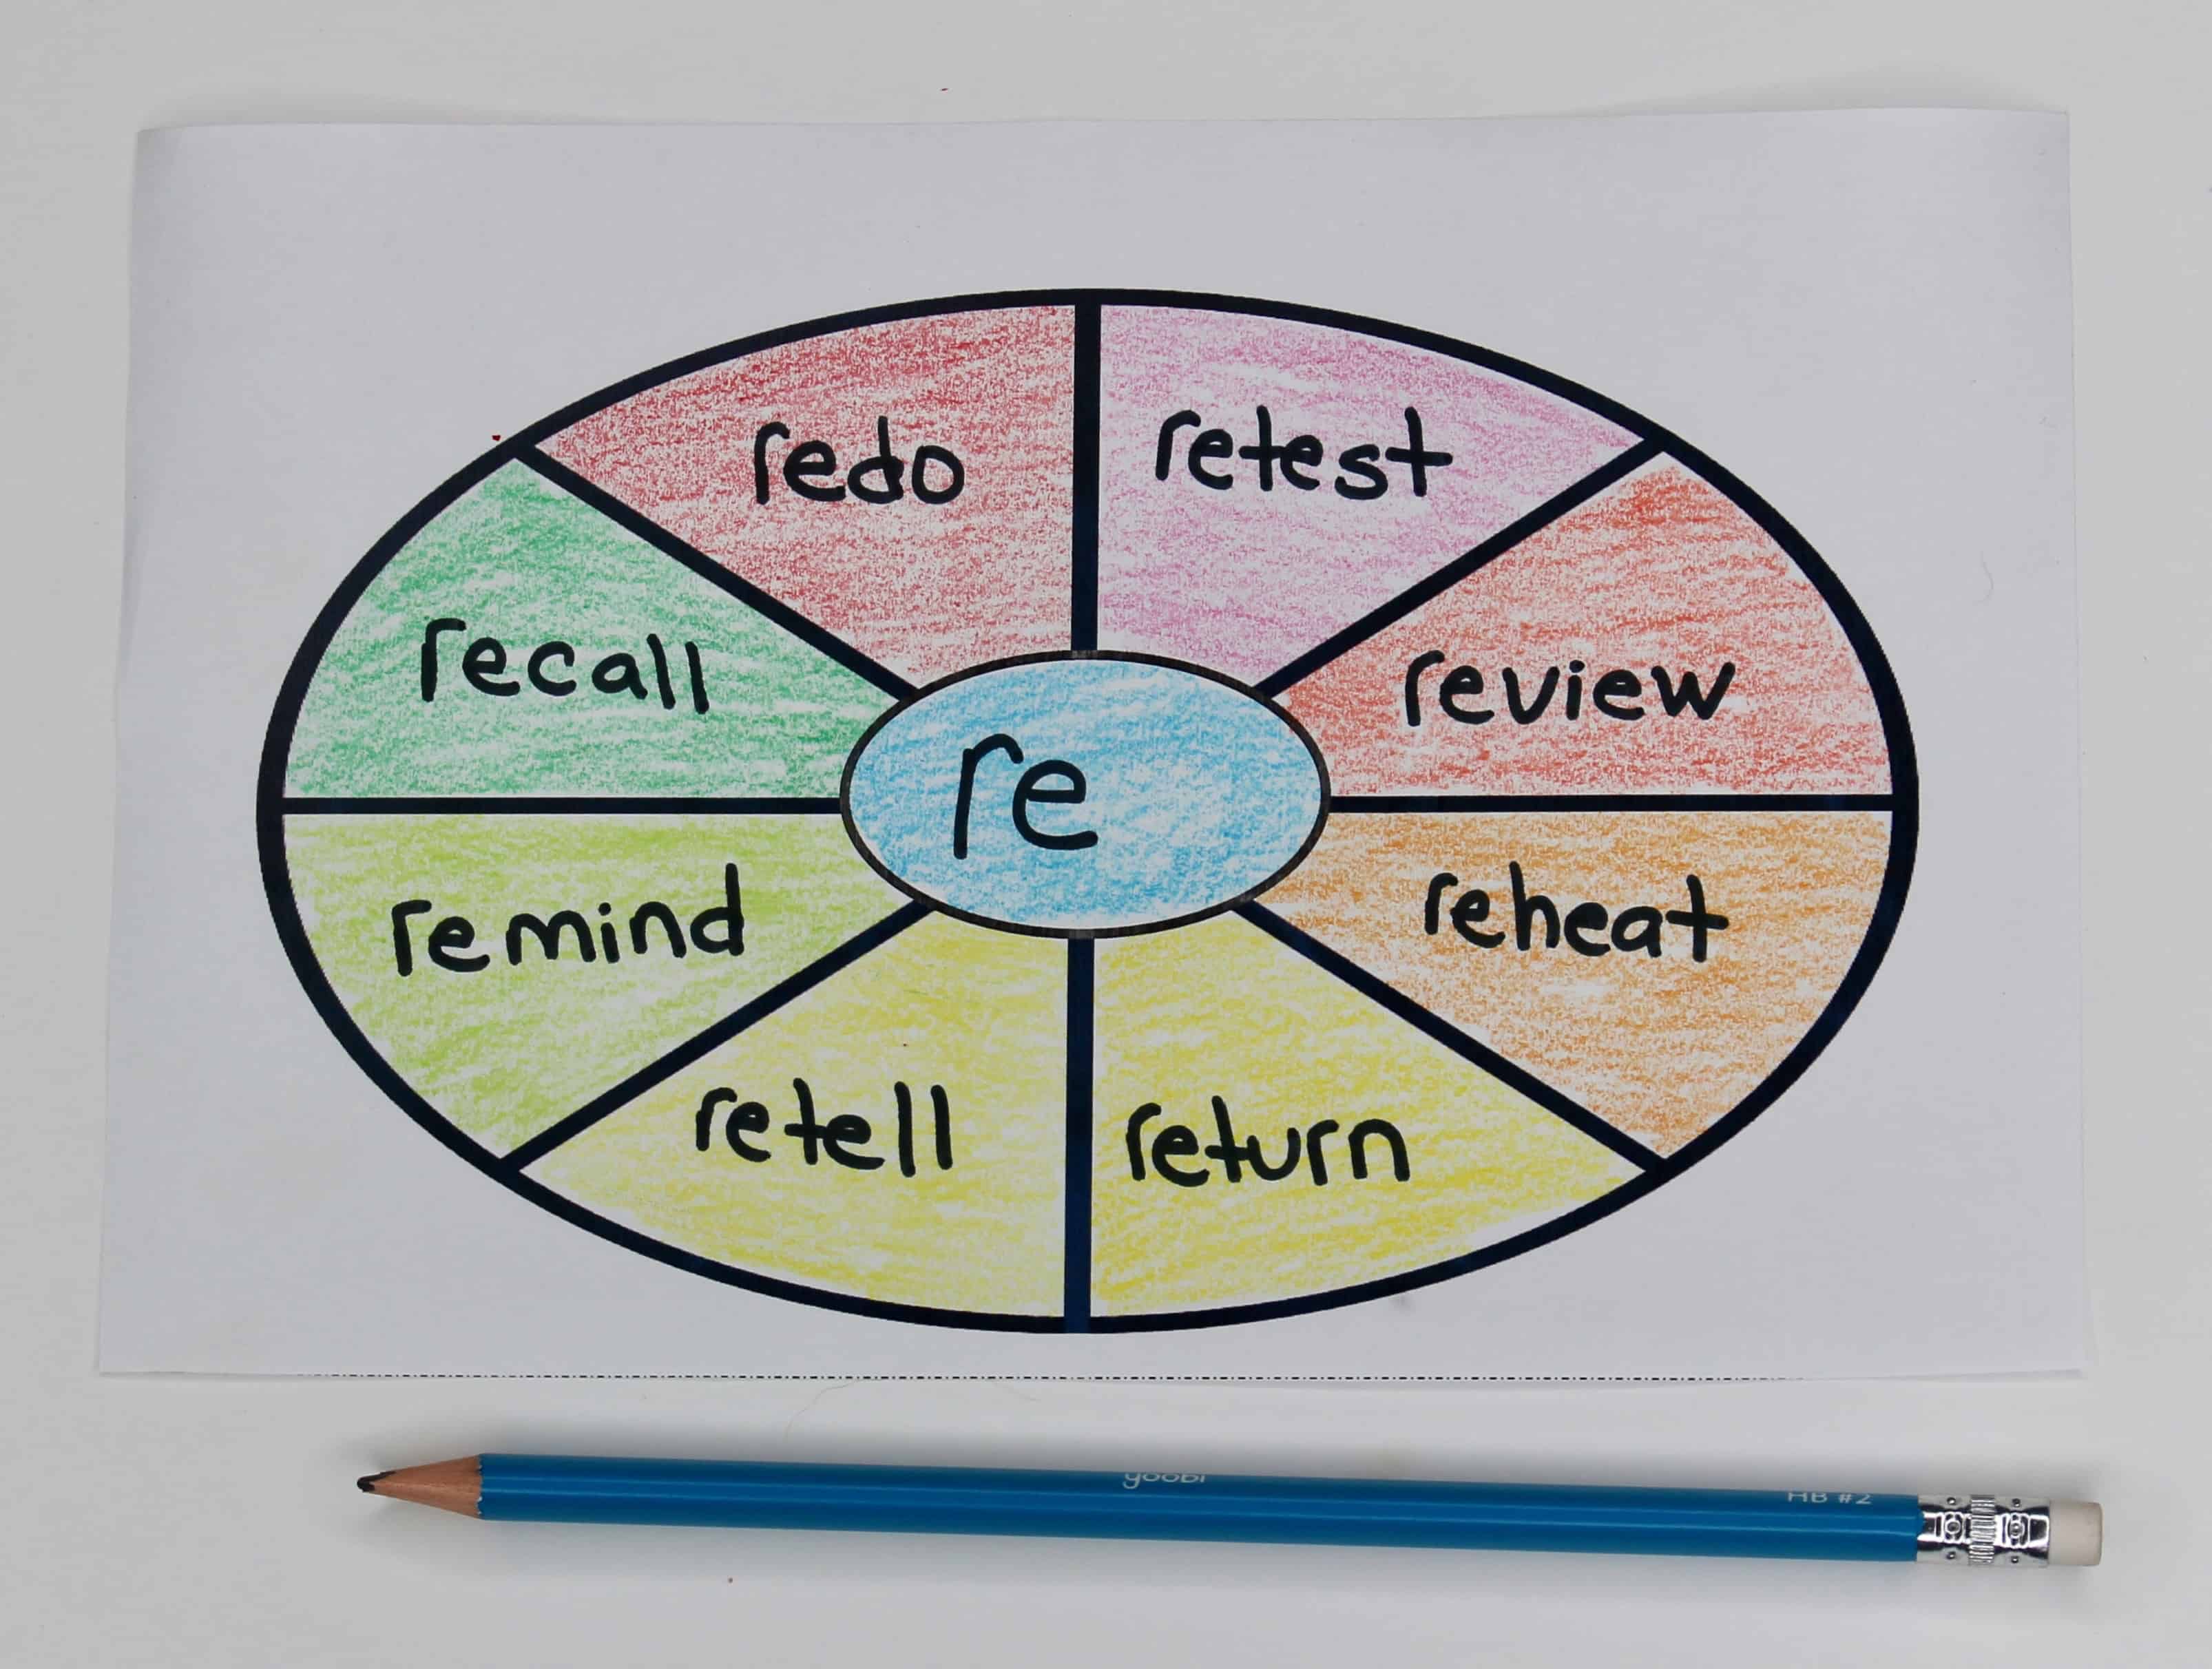 redo
retest
recall
review
re
remind
reheat
retell
return
yoobi
HB #2